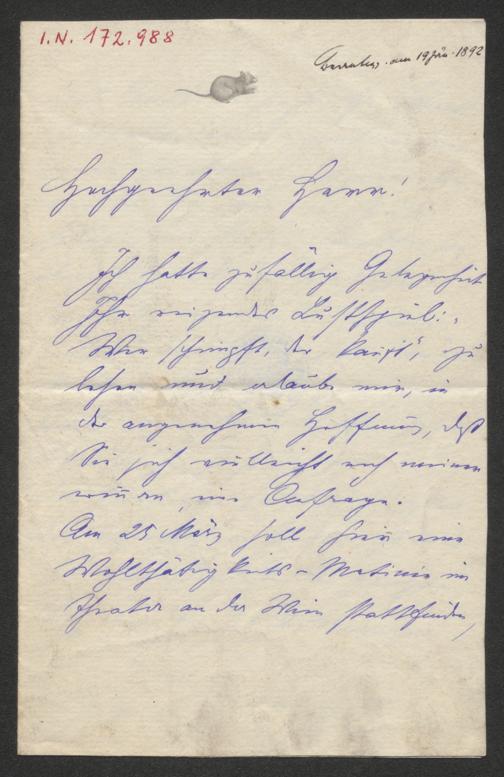 I.N. 172.988
am 19 1892
Hochgeehrter Herr!
Ich hatte zufällig Gelegenheit
Ihr reizendes Lustspiel: „
Wer schimpft, der kauft“, zu
lesen und erlaube mir, in
der angenehmen Hoffnung, daß
Sie sich vielleicht noch meiner
erinnern, eine Anfrage.
Am 25 März soll hier eine
Wohlthätigkeits-Matinée im
Theater an der Wien stattfinden,